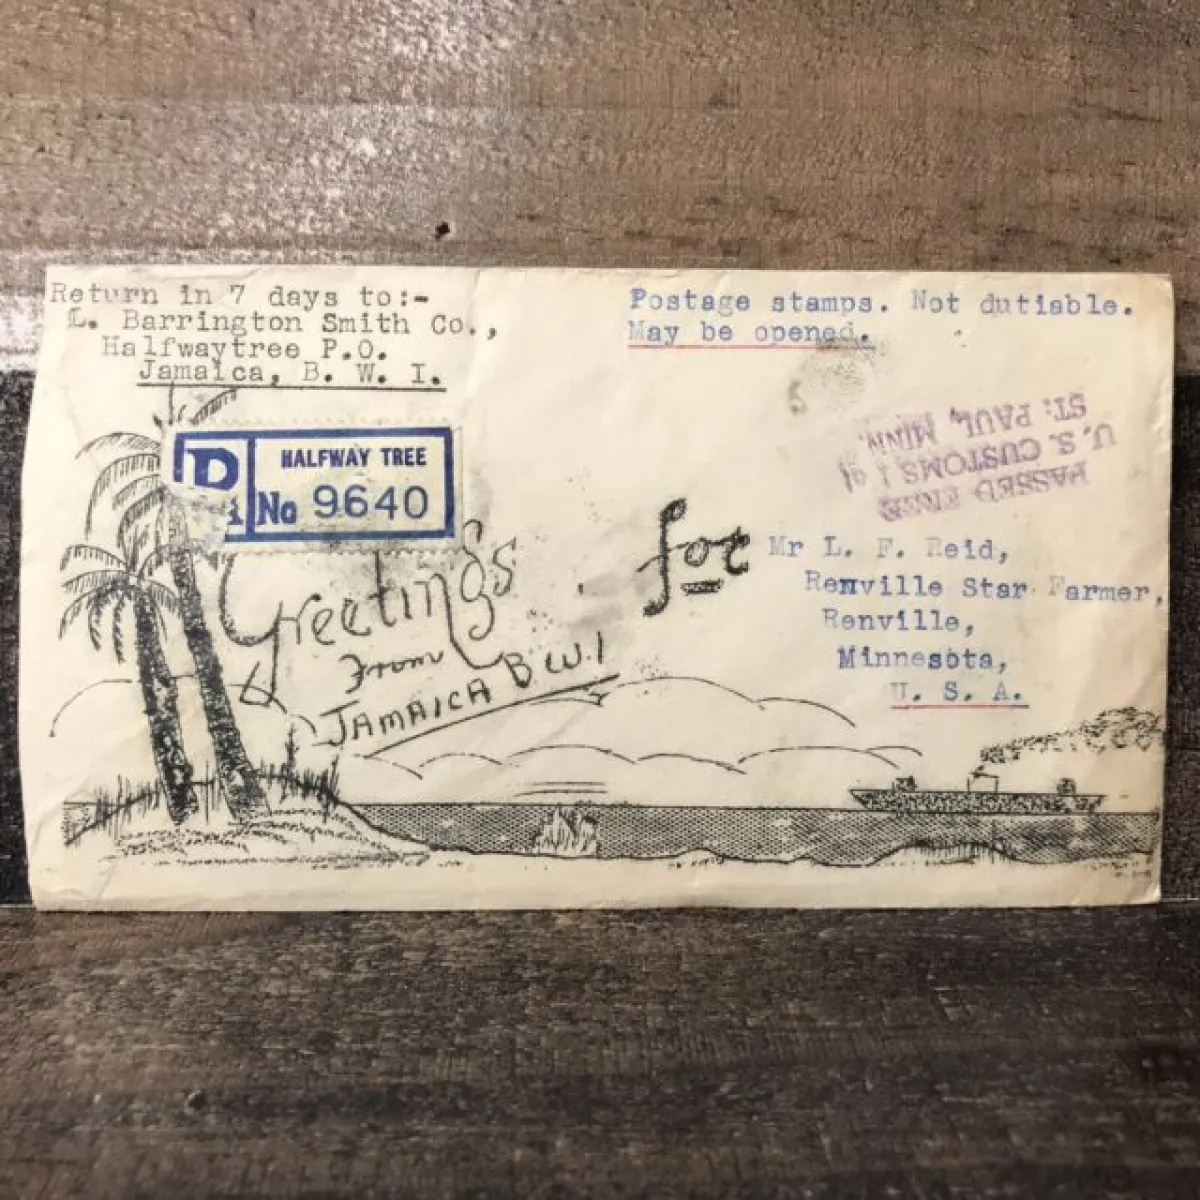 Return in 7 days to:-
L. Barrington Smith Co.,
Halfwaytree P.O.
Jamaica, B. W. I.
Postage stamps. Not dutiable.
May be opened.
PASSED FREE
U. S. CUSTOMS
ST. PAUL, MINN.
R
HALFWAY TREE
No 9640
Greetings
From
JAMAICA B W.I
for
Mr L. F. Reid,
Renville Star Farmer,
Renville,
Minnesota,
U. S. A.